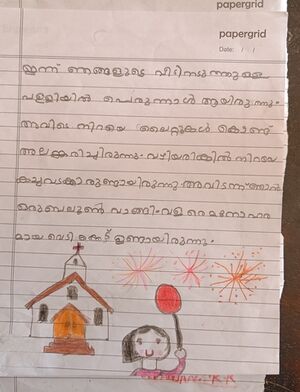 papergrid
papergrid
Date: / /
ഇന്ന് ഞങ്ങളുടെ വീടിനടുത്തുള്ള
പള്ളിയിൽ പെരുന്നാൾ ആയിരുന്നു.
അവിടെ നിറയെ ലൈറ്റുകൾ കൊണ്ട്
അലങ്കരിച്ചിരുന്നു. വഴിയരികിൽ നിറയെ
കച്ചവടക്കാരുണ്ടായിരുന്നു. അവിടന്ന് ഞാൻ
ഒരു ബലൂൺ വാങ്ങി. വളരെ മനോഹര
മായ വെടിക്കെട്ട് ഉണ്ടായിരുന്നു.